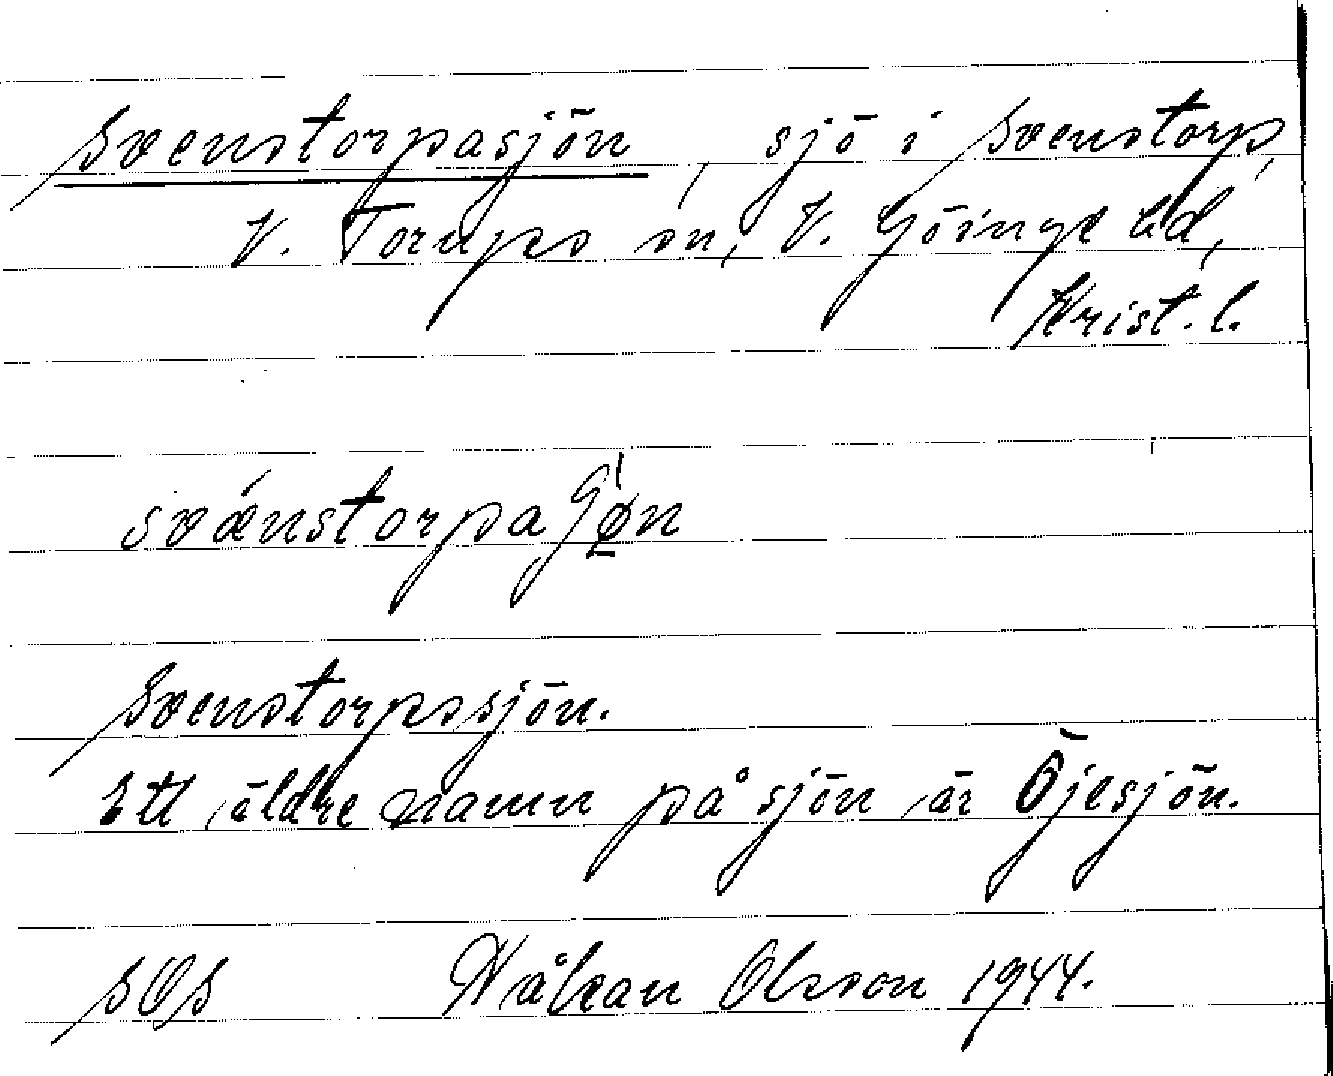 Svenstorpasjön, sjö i Svenstorp,
V. Torups sn, V. Göinge hd,
Krist. l.
sván̄storpa
Svenstorpssjön.
Ett äldre namn på sjön är Öjesjön.
SOS Håkan Olsson 1944.